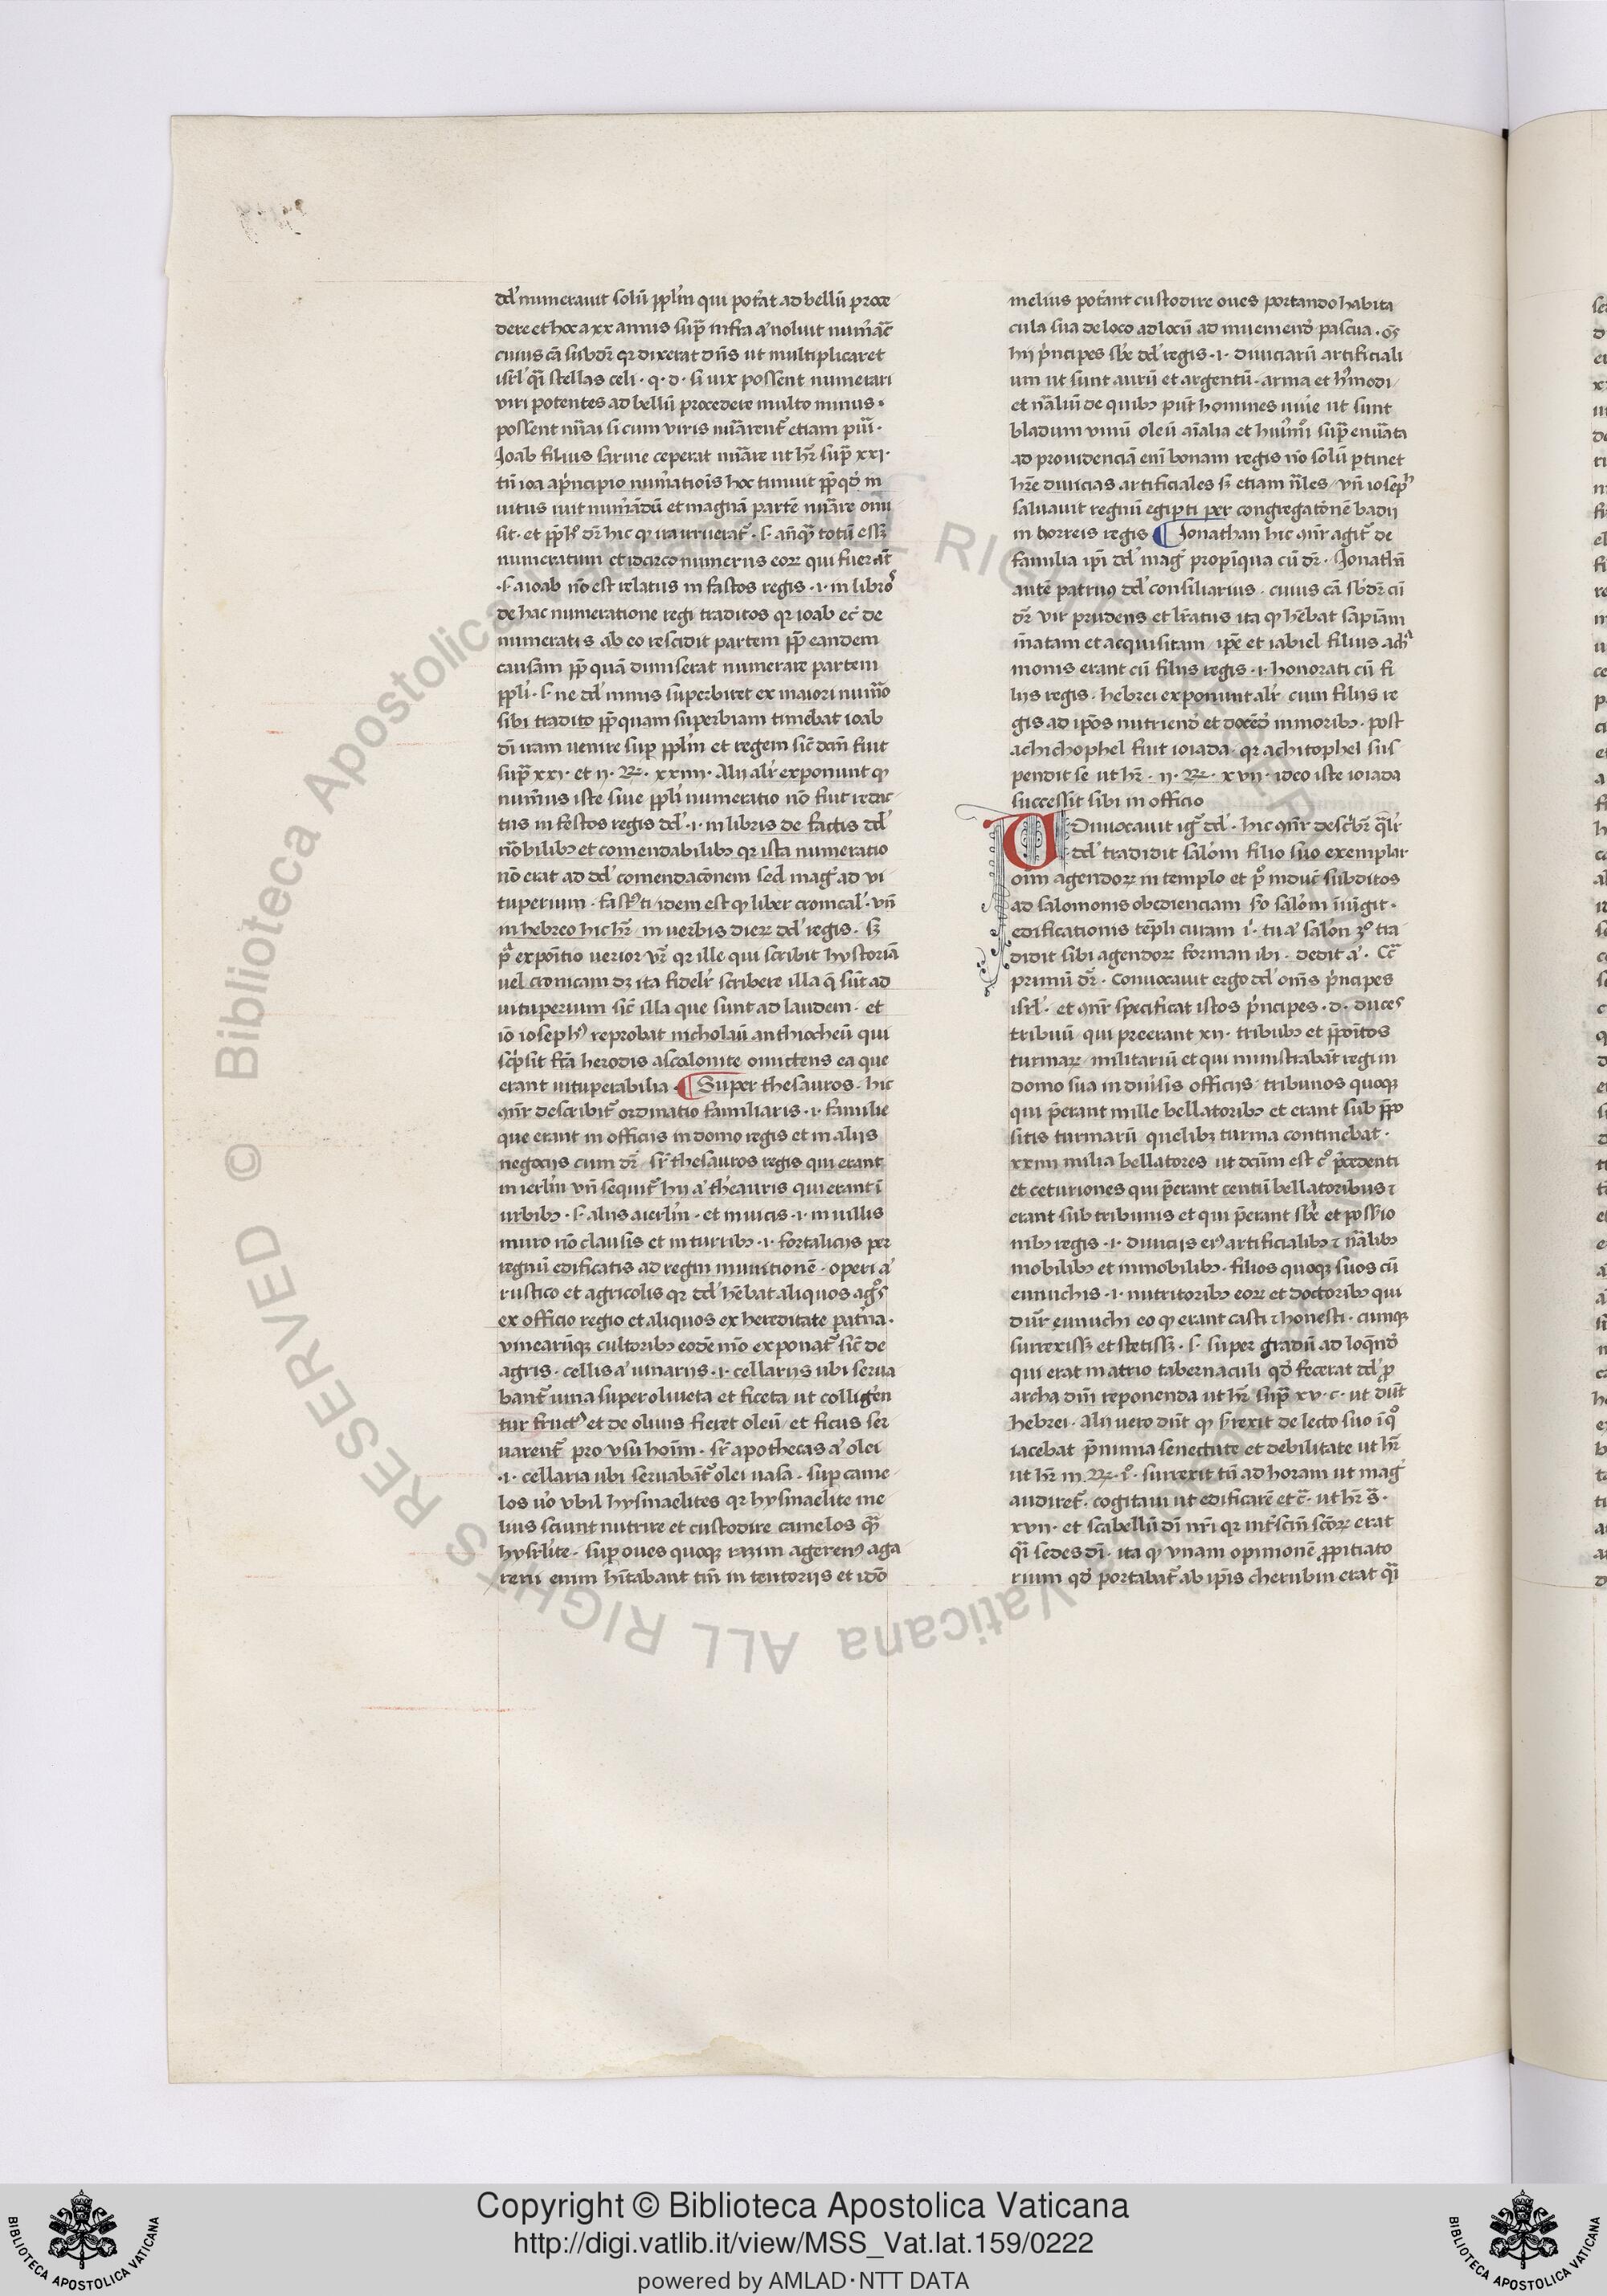 dd' numerauit solū pplm qui pot'at ad bellū proce
dere et hoc a xx annis supra infra a' noluit num'ac
cuius cā subdr̄ qr dixerat dn̄s ut multiplicaret
isrl' q̄i stellas celi · q · d · si uix possent numerari
viri potentes ad bellū procedere multo minus ·
possent nūai si cum viris nūarent' etiam pūi ·
Joab filius saruie ceperat nūare ut hr̄ sup̄ xxj ·
tn̄ ioa a p̄ncipio num'atiois hoc timuit pp qd' in
uitus iuit num'adū et magnā partē nūare omi
sit · et pp h° dr̄ hic qz ira irruerat' · s · anq̄ totū essz
numeratum et idcirco numerus eorz qui fuerāt
· s · a ioab nō est relatus in fastos regis · i · in libro
de hac numeratione regi traditos qr ioab ec' de
numeratis ab eo rescidit partem pp eandem
causam pp quā dimiserat numerare partem
ppli · s · ne dd' nimis superbiret ex maiori num'o
sibi tradito pp quam superbiam timebat ioab
dī iram uenire sup pplm et regem sic' dcm̄ fuit
sup̄ xxi · et ij · Rz · xxiiii · Alij alr' exponunt qz
num'us iste siue ppli numeratio nō fuit redac
tus in festos regis dd' · i · in libris de factis dd'
nōbilibz et comendabilibz qr ista numeratio
nō erat ad dd' comendacōnem sed mag' ad vi
tuperium · fast'ti idem est qz liber cronical' · vn̄
in hebreo hic hr̄ in uerbis dierz dd' regis · sz
p̄ expōitio uerior vr̄ qr ille qui scribit hystoriā
uel cronicam dz ita fidelr' scribere illa q̄ sūt ad
uituperium sic' illa que sunt ad laudem · et
iō ioseph' reprobat nicholaū anthiocheū qui
sc'psit fc̄a herodis ascalonite omictens ea que
erant uituperabilia · ¶ Super thesauros · hic
qn̄r describit' ordinatio familiaris · i · familie
que erant in officiis in domo regis et in aliis
negociis cum dr̄ · sr̄ thesauros regis qui erant
in ierlm vn̄ sequit' hij a' th'eauris qui erant ī
urbibz · s · aliis a ierlm · et in uicis · i · in uillis
muro nō clausis et in turribz · i · fortaliciis per
regnū edificatis ad regni munitionē · operi a'
rustico et agricolis qr dd' hēbat aliquos ag°s
ex officio regio et aliquos ex hereditate pat'na ·
vinearūqz cultoribz eodē mō exponat' sic' de
agris · cellis a' uinariis · i · cellariis ubi serua
bant' uina super oliueta et ficeta ut colligen
tur fruct' et de oliuis fieret oleū · et ficus ser
uarent' pro vsu hoim̄ · sr̄ apothecas a' olei
· i · cellaria ubi seruabāt' olei uasa · sup came
los u'o vbil hysmaelites qr hysmaelite me
lius sciunt nutrire et custodire camelos q̄
hysrl'ite · sup oues quoqz iazim agerenz aga
reni enim hītabant tm̄ in tentoriis et idō
melius pot'ant custodire oues portando habita
cula sua de loco ad locū ad inueniend' pascua · oēs
hij p̄ncipes sb̄e dd' regis · i · diuiciarū artificiali
um ut sunt aurū et argentū · arma et h'modi
et nāliū de quibz pn̄t homines uiuē ut sunt
bladum vinū oleū aīalia et hui'mōi sup̄ enūata
ad prouidenciā enī bonam regis nō solū ptinet
hr̄e diuicias artificiales sz etiam nāles · vn̄ ioseph
saluauit regnū egipti per congregatōnē badii
in horreis regis ¶ Jonathan hic qn̄r agit' de
familia ip̄i dd' mag' propīqua cū dr̄ · Jonathā
autē patruus dd' consiliarius · cuius cā sb̄dr̄ cū
dr̄ vir prudens et lr̄atus ita qz hēbat sapiām
īnatam et acquisitam · ip̄e et iabiel filius ach'
monis erant cū filiis regis · i · honorati cū fi
liis regis · hebrei exponunt alr' cum filiis re
gis ad ip̄os nutriend' et docēd' in moribz · post
achichophel fuit ioiada · qr achitophel sus
pendit se ut hr̄ · ij · Rz · xvij · ideo iste ioiada
successit sibi in officio
Dnuocauit ig' dd' · hic qn̄r descr'br̄ q̄lr'
dd' tradidit salom̄ filio suo exemplar
oīm agendorz in templo et p° induc' subditos
ad salomonis obedienciam · s°o salom̄ iniūgit ·
edificationis tēpli curam i' · tu a' salōn 3° tra
didit sibi agendorz forman ibi · dedit a' · Cc̄
primū dr̄ · Conuocauit ergo dd' om̄s p̄ncipes
isrl' · et qn̄r specificat istos p̄ncipes · d · duces
tribuū · qui preerant xij · tribubz et pp̄oitos
turmarz · militariū et qui ministrabāt regi in
domo sua in diu'sis officiis · tribunos quoqz
qui p̄erant mille bellatoribz et erant sub pp̄o
sitis turmarū quelibz turma continebat ·
xxiiij milia bellatores ut dcūm est c° p̄cedenti
et ceturiones qui p̄erant centū bellatoribus ⁊
erant sub tribunis et qui p̄erant sb̄e et possio
nibz regis · i · diuiciis ei' artificialibz ⁊ nālibz
mobilibz et inmobilibz · filios quoqz suos cū
eunuchis · i · nutritoribz eorz et doctoribz qui
dūr eunuchi eo qz erant casti ⁊ honesti · cumqz
surrexissz et stetissz · s · super gradū ad loquēd'
qui erat in atrio tabernaculi qd' fecerat dd' p
archa dn̄i reponenda ut hr̄ sup̄ xv · c · ut dn̄t
hebrei · Alij uero dn̄t qz s'rexit de lecto suo in q°
iacebat p̄ nimia senectute et debilitate ut hr̄
ut hr̄ iij Rz · i° · surrexit tn̄ ad horam ut mag'
audiret' · cogitaui ut edificarē et c̄ · ut hr̄ s̄ ·
xvij · et scabellū dī nr̄i qr int' scm̄ scōrz erat
q̄i sedes dī · ita qz vnam opinionē ppitiato
rium qd' portabat' ab ip̄is cherubin erat q̄i
Copyright © Biblioteca Apostolica Vaticana
http://digi.vatlib.it/view/MSS_Vat.lat.159/0222
powered by AMLAD·NTT DATA
BIBLIOTECA APOSTOLICA VATICANA
BIBLIOTECA APOSTOLICA VATICANA
© Biblioteca Apostolica Vaticana ALL RIGHTS RESERVED